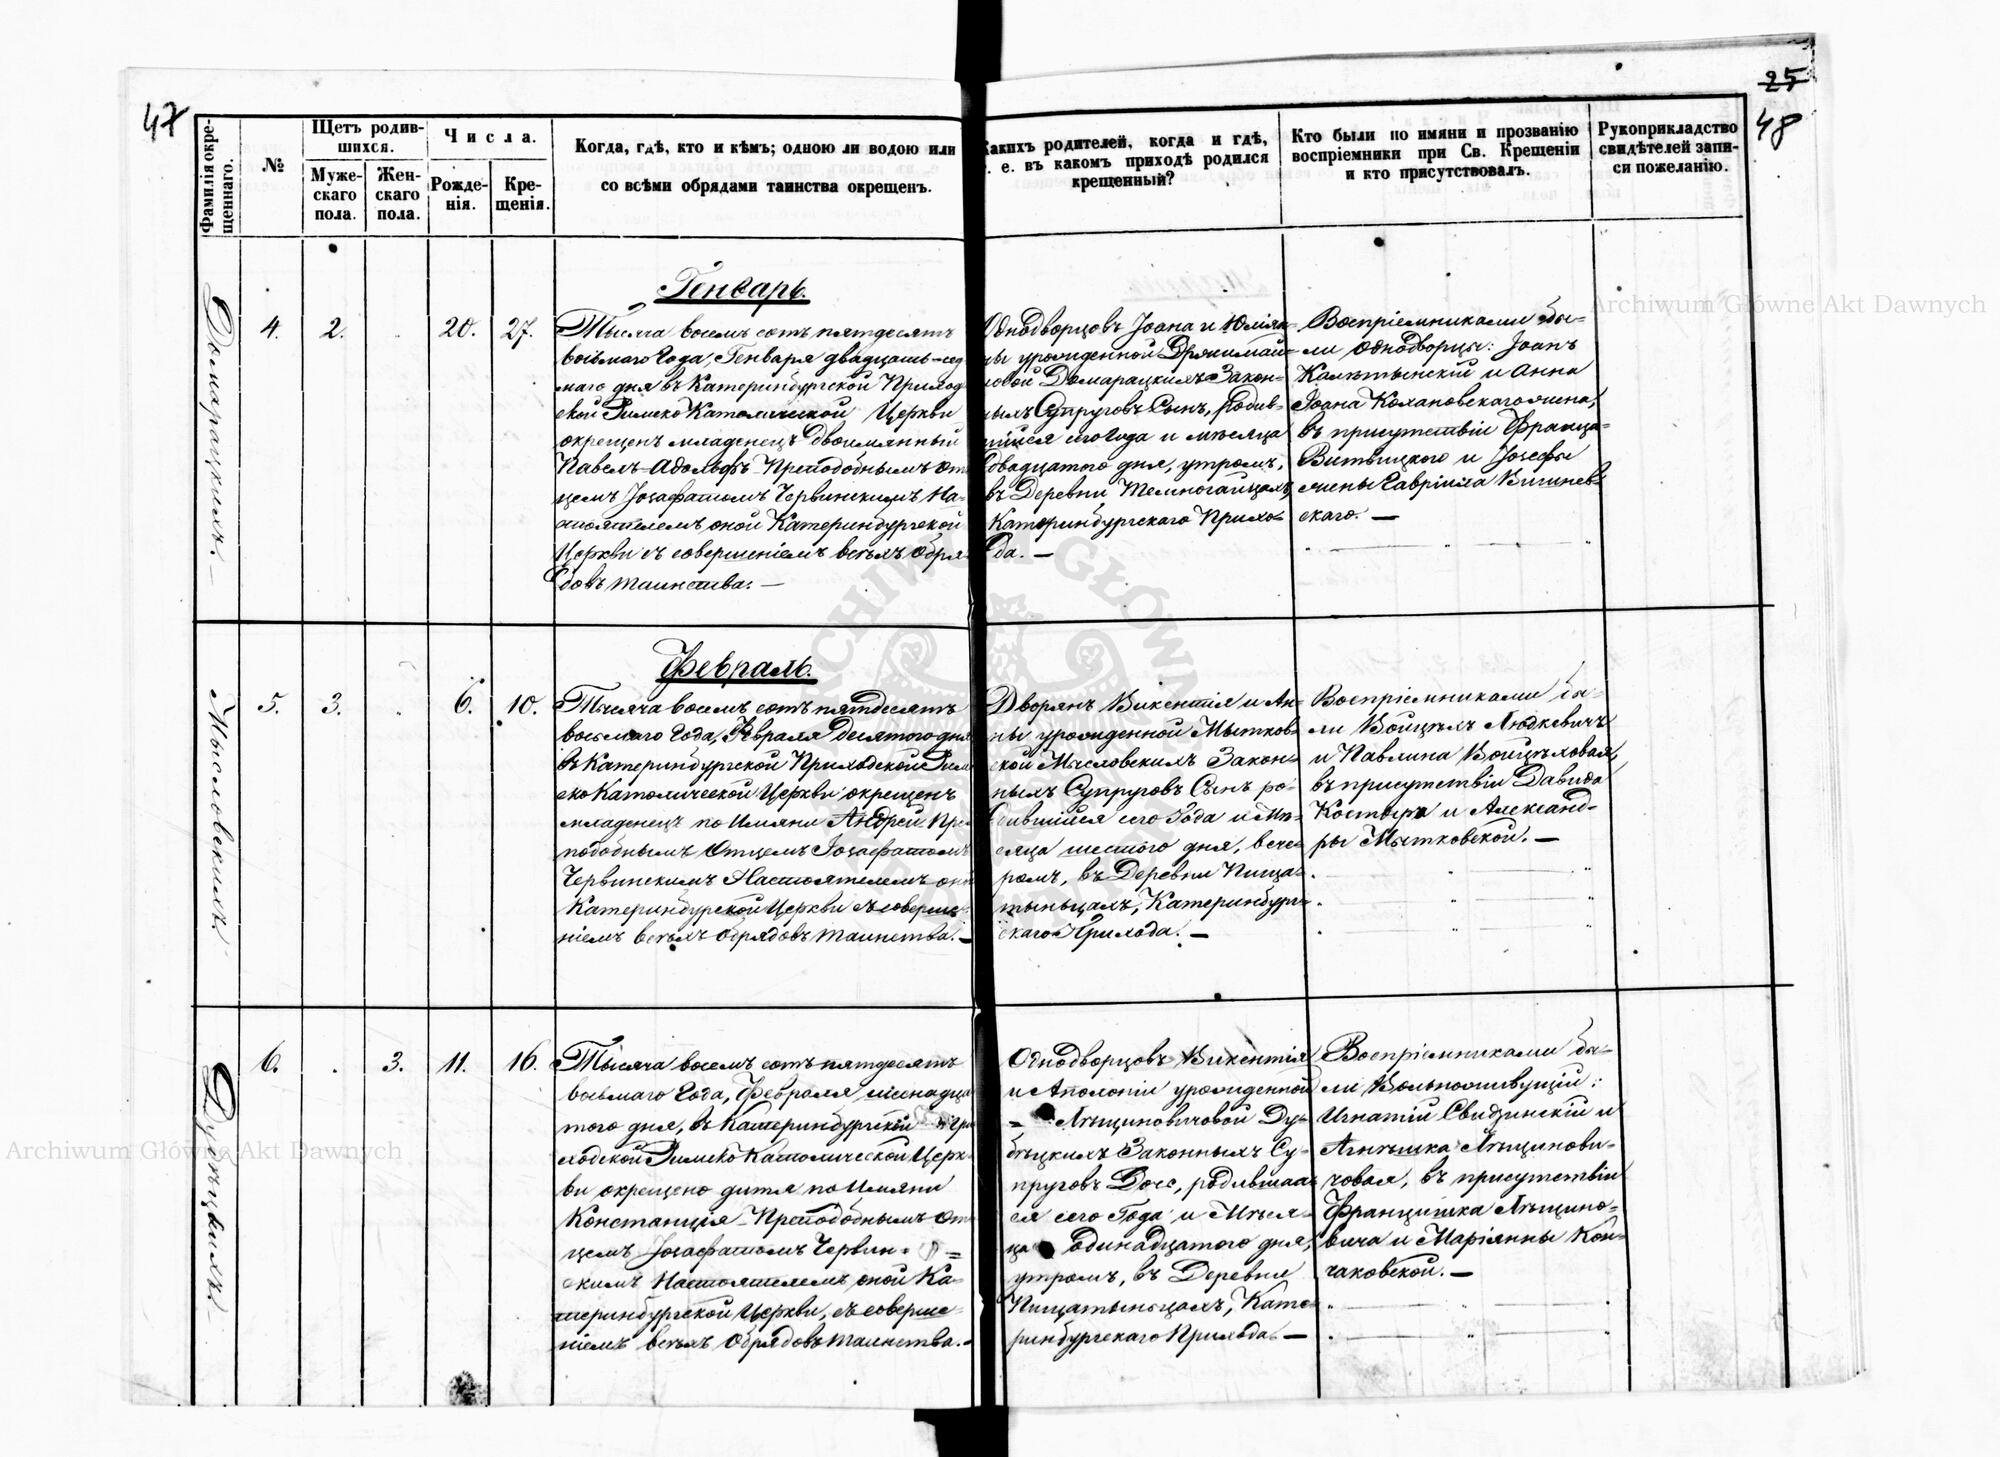 47
25
48
Фамилія окрещеннаго.
№
Щетъ родив-
шихся.
Муже-
скаго
пола.
Жен-
скаго
пола.
Числа.
Рожде-
нія.
Кре-
щенія.
Когда, гдѣ, кто и кѣмъ; одною ли водою или
со всѣми обрядами таинства окрещенъ.
Какихъ родителей, когда и гдѣ,
т. е. въ какомъ приходѣ родился
крещенный?
Кто были по имяни и прозванію
воспріемники при Св. Крещеніи
и кто присутствовалъ.
Рукоприкладство
свидѣтелей запи-
си пожеланію.
Генварь.
Домарацкихъ.
4. 2. 20. 27.
Тысяча восемъ сотъ пятдесятъ
восьмаго Года, Генваря двадцать-сед
маго дня въ Катеринбургской Приход
ской Римско Католической Церкви
окрещенъ младенецъ двоимянный
Павелъ-Адольфъ Преподобнымъ От
цемъ Іозафатомъ Червинскимъ На-
стоятелемъ оной Катеринбургской
Церкви съ совершеніемъ всѣхъ обря
довъ таинства. —
Однодворцовъ Іоана и Юліян-
ны урожденной
Домарацкихъ Закон-
ныхъ Супруговъ Сынъ, родив-
шійся сего Года и мѣсяца
двадцатого дня, утромъ,
въ Деревни Темногайцахъ,
Катеринбургскаго Прихо-
да. —
Воспріемниками бы-
ли Однодворцы: Іоанъ
и Анна
Іоана Кохановскаго жена,
въ присутствіи Франца
Витвицкого и Іосефы
жены Гавріила Вишнев-
скаго. —
Февраль.
Мысловскихъ
5. 3. 6. 10.
Тысяча восемъ сотъ пятдесятъ
восьмаго Года, Февраля десятого дня
въ Катеринбургской Приходской Рим
ско Католической Церкви окрещенъ
младенецъ по Имяни Андрей Пре
подобнымъ Отцемъ Іозафатомъ
Червинскимъ Настоятелемъ оной
Катеринбургской Церкви съ соверше-
ніемъ всѣхъ обрядовъ таинства. —
Дворянъ Викентія и Ан-
ны урожденной Мытков-
ской Масловскихъ Закон-
ныхъ Супруговъ Сынъ ро-
дившійся сего Года и Мѣ-
сяца шестого дня, вече-
ромъ, въ Деревни Пища-
тыньцахъ, Катеринбург-
скаго Прихода. —
Воспріемниками бы-
ли Войцѣхъ Людкевичъ
и Павлина Войцѣховая,
въ присутствіи Давида
и Александ-
ры Мытковской. —
Дубѣцкихъ
6. 3. 11. 16.
Тысяча восемъ сотъ пятдесятъ
восьмаго Года, Февраля шеснадца
того дня, въ Катеринбургской При
ходской Римско Католической Церк-
ви окрещено дитя по Имяни
Констанція Преподобнымъ От
цемъ Іозафатомъ Червин-
скимъ Настоятелемъ оной Ка-
теринбургской Церкви, съ соверше-
ніемъ всѣхъ Обрядовъ таинства. —
Однодворцовъ Викентія
и Аполоніи урожденной
Лѣщиновичовой Ду-
бѣцкихъ Законныхъ Су-
пруговъ Дочь, родившая-
ся сего Года и Мѣся-
ца одинадцатого дня,
утромъ, въ Деревни
Пищатыньцахъ, Кате-
ринбургскаго Прихода. —
Воспріемниками бы-
ли Вольноживущіи:
Игнатій Свидзинскій и
Агнѣшка Лѣщинови-
човая, въ присутствіи
Францишка Лѣщино-
вича и Маріянны Кон-
чаковской. —
Archiwum Główne Akt Dawnych
Archiwum Główne Akt Dawnych